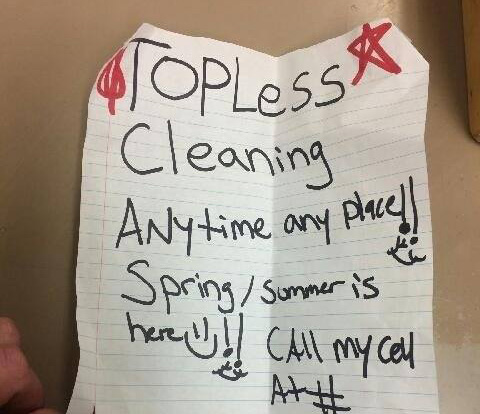 TOPLess
Cleaning
ANytime any place!!
Spring/summer is
here!!
CAll my cell
At #